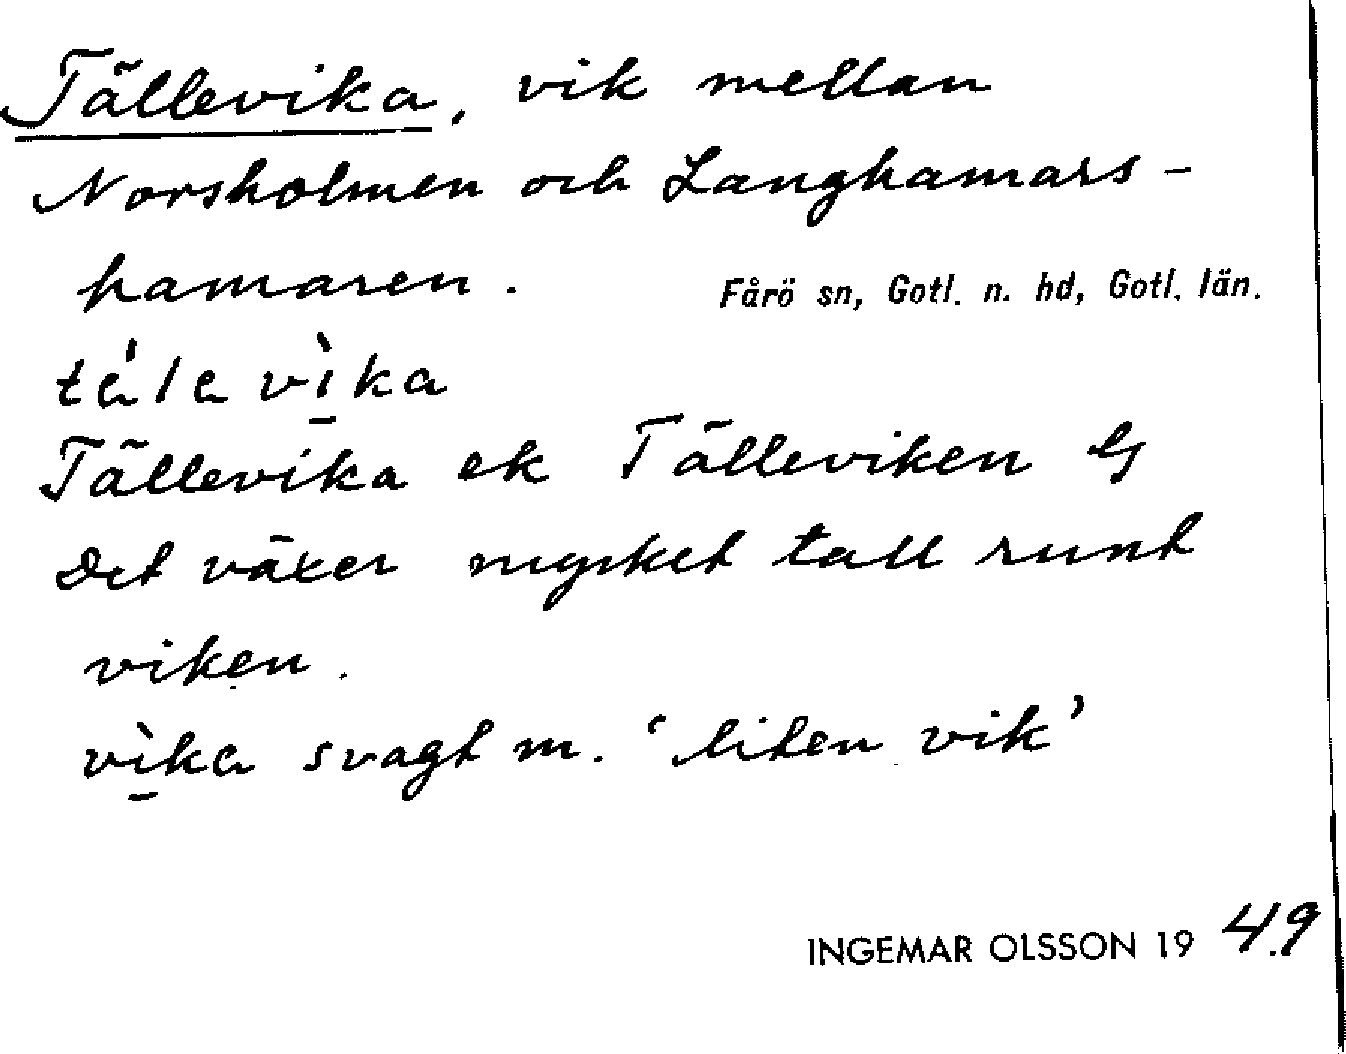 Tällevika, vik mellan
Norsholmen och Langhamars-
hamaren. Fårö sn, Gotl. n. hd, Gotl. län.
Tällevika ek Tälleviken
Det växer mycket tall runt
viken.
svagt m. ‘liten vik’
INGEMAR OLSSON 19 49